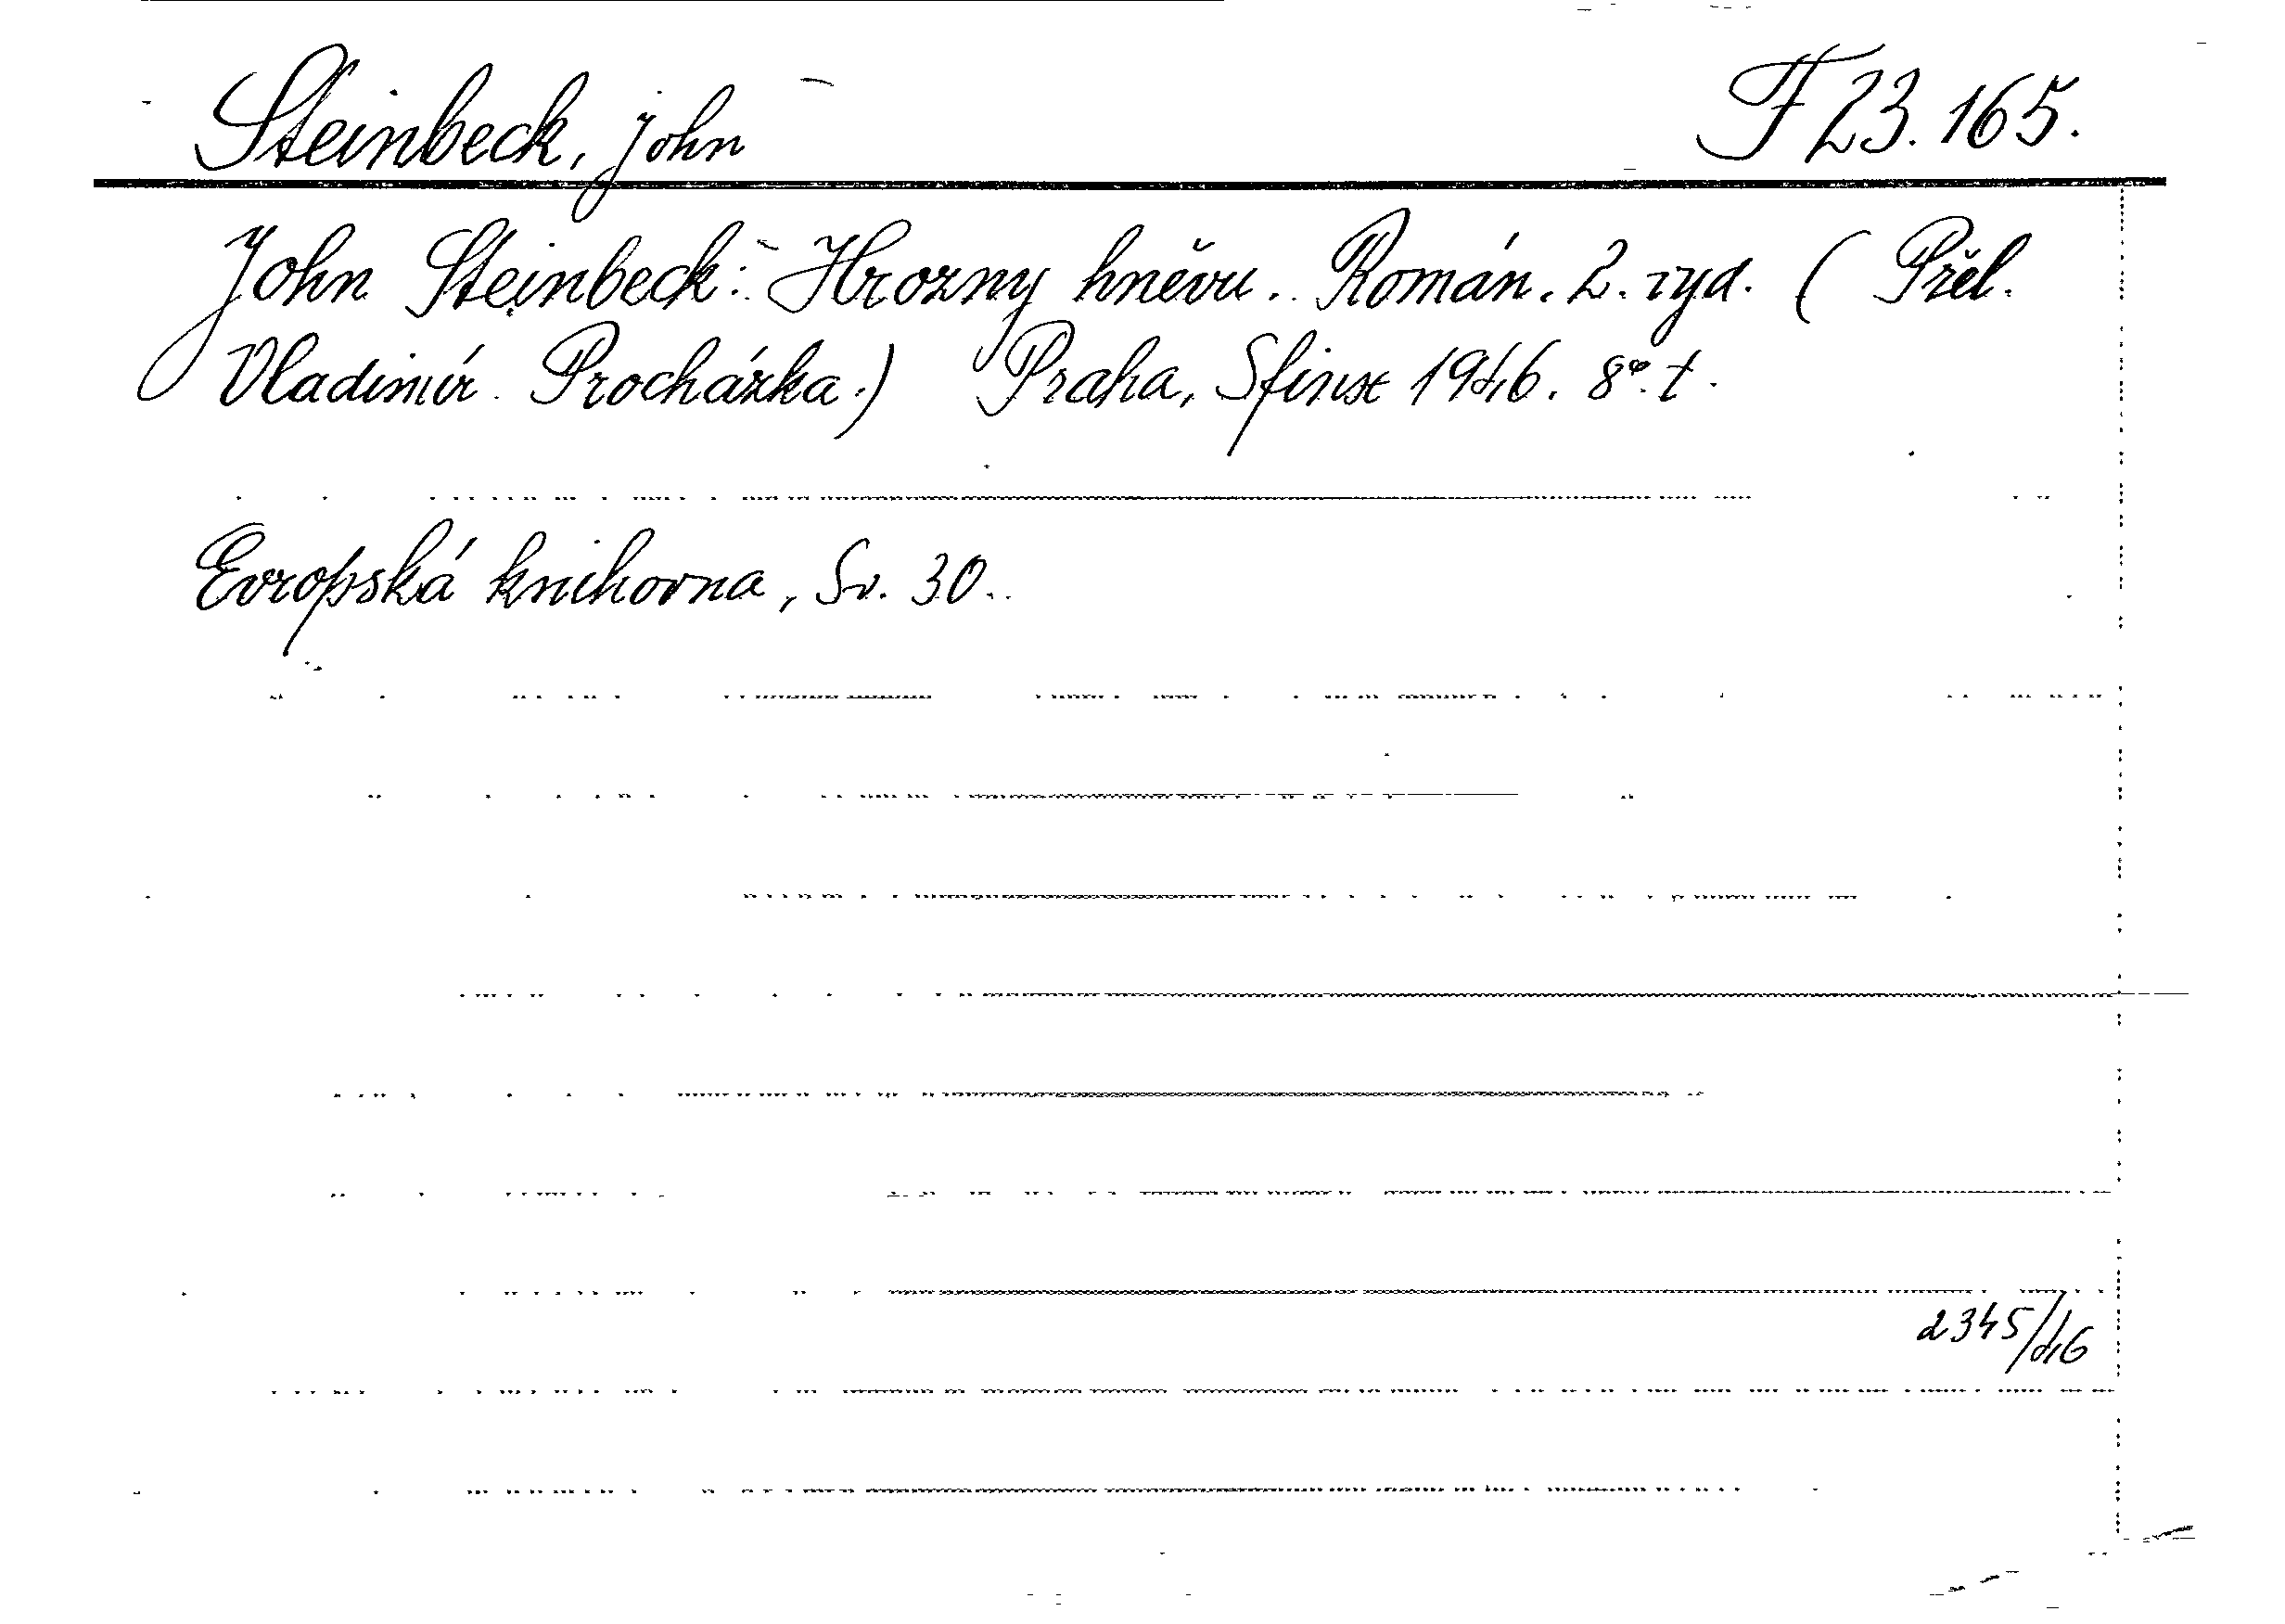 Steinbeck, John
F 23.165.
John Steinbeck: Hrozny hněvu. Román. 2. vyd. (Přel.
Vladimír Procházka.) Praha, Sfinx 1946. 8°. t.
Evropská knihovna, Sv. 30.
2345/46